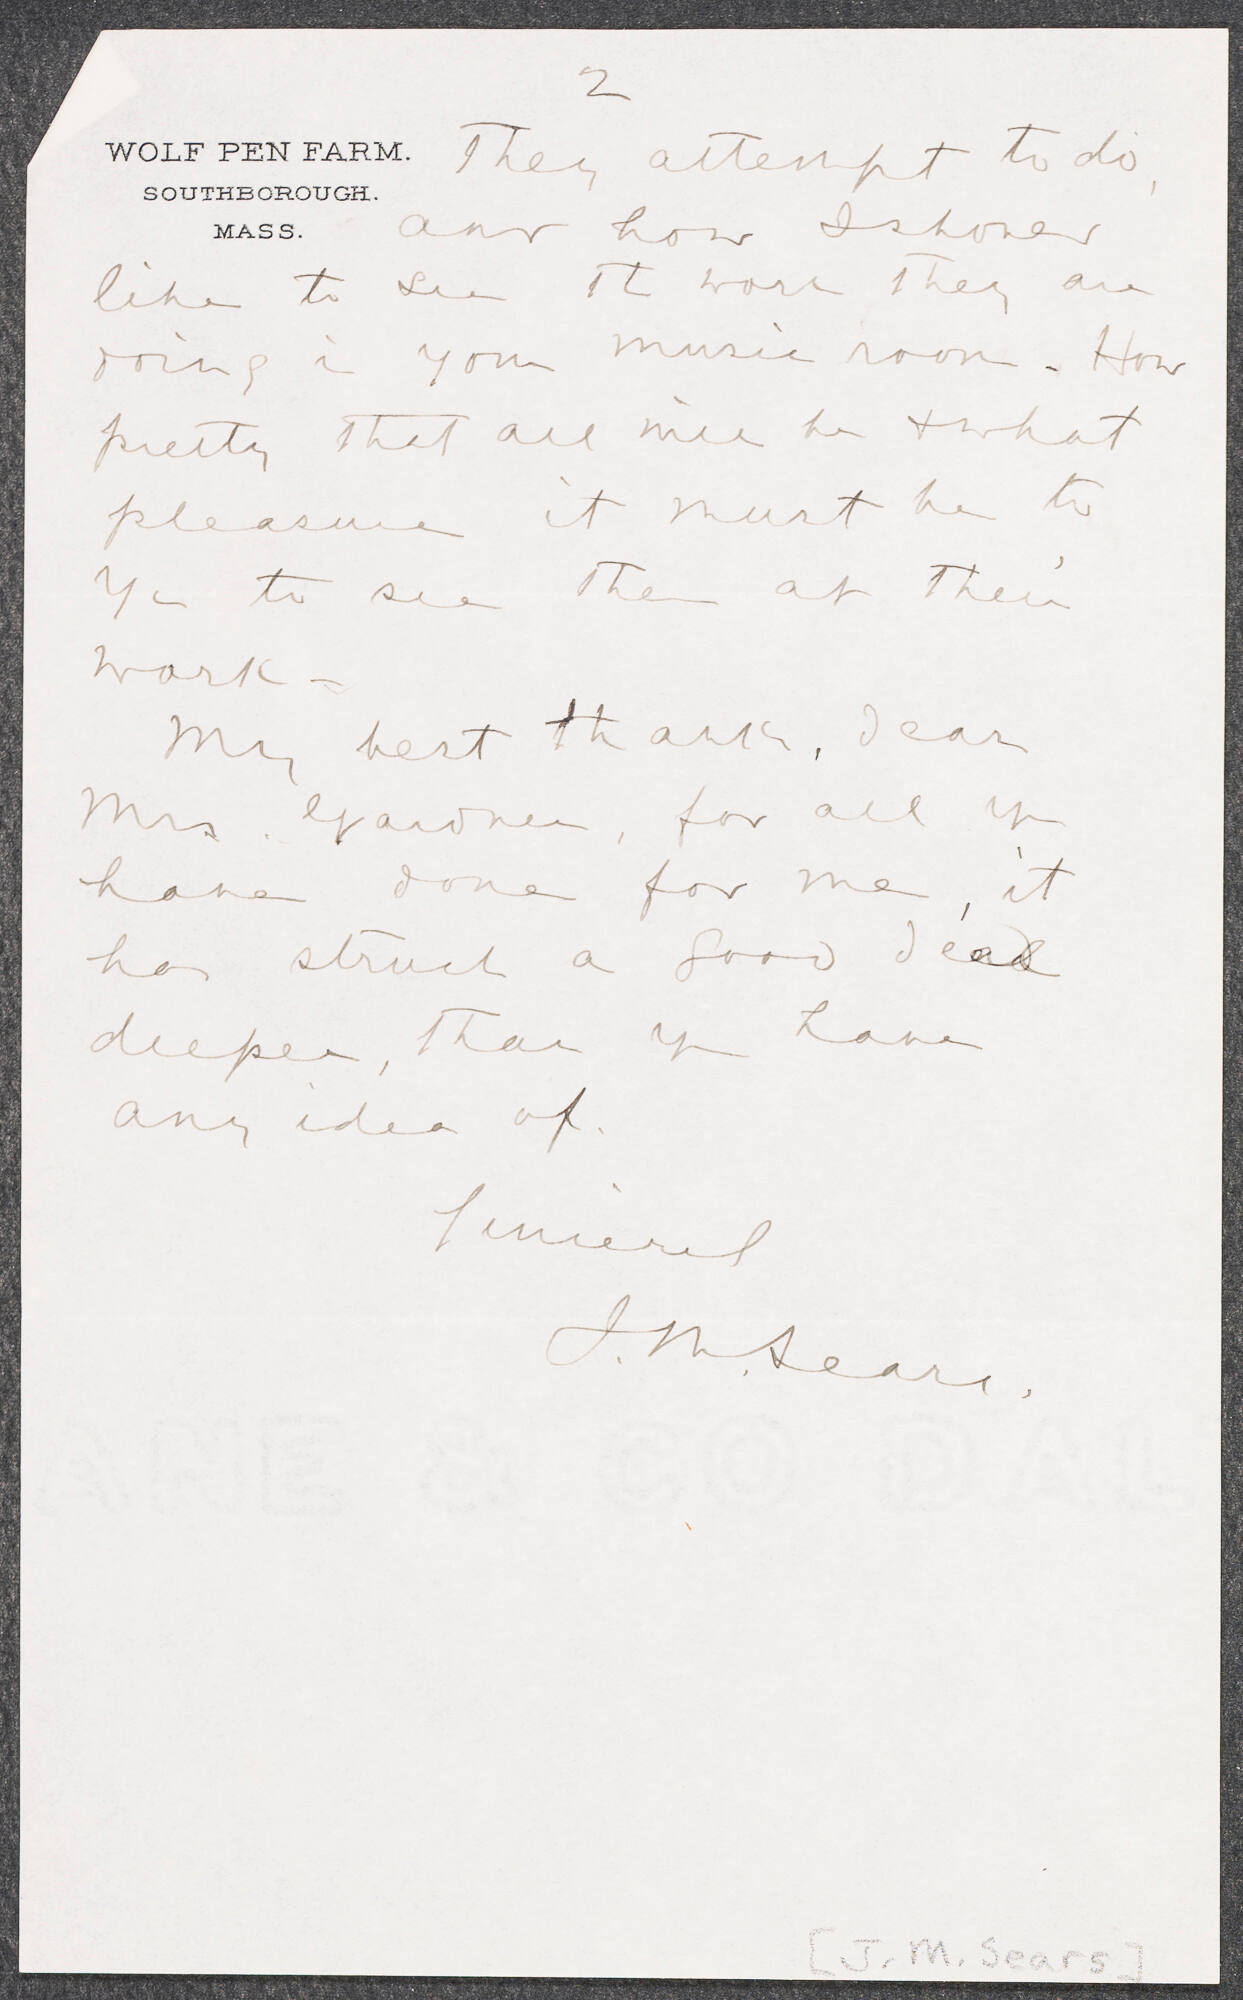 2
WOLF PEN FARM.
SOUTHBOROUGH.
MASS.
they attempt to do,
and how I should
like to see the work they are
doing in your music room. How
pretty that all will be & what
pleasure it must be to
you to see them at their
work -
My best thanks, dear
Mrs. Gardner, for all you
have done for me, it
has struck a good deal
deeper, than you have
any idea of.
Sincerely
J. M. Sears.
[J. M. Sears]